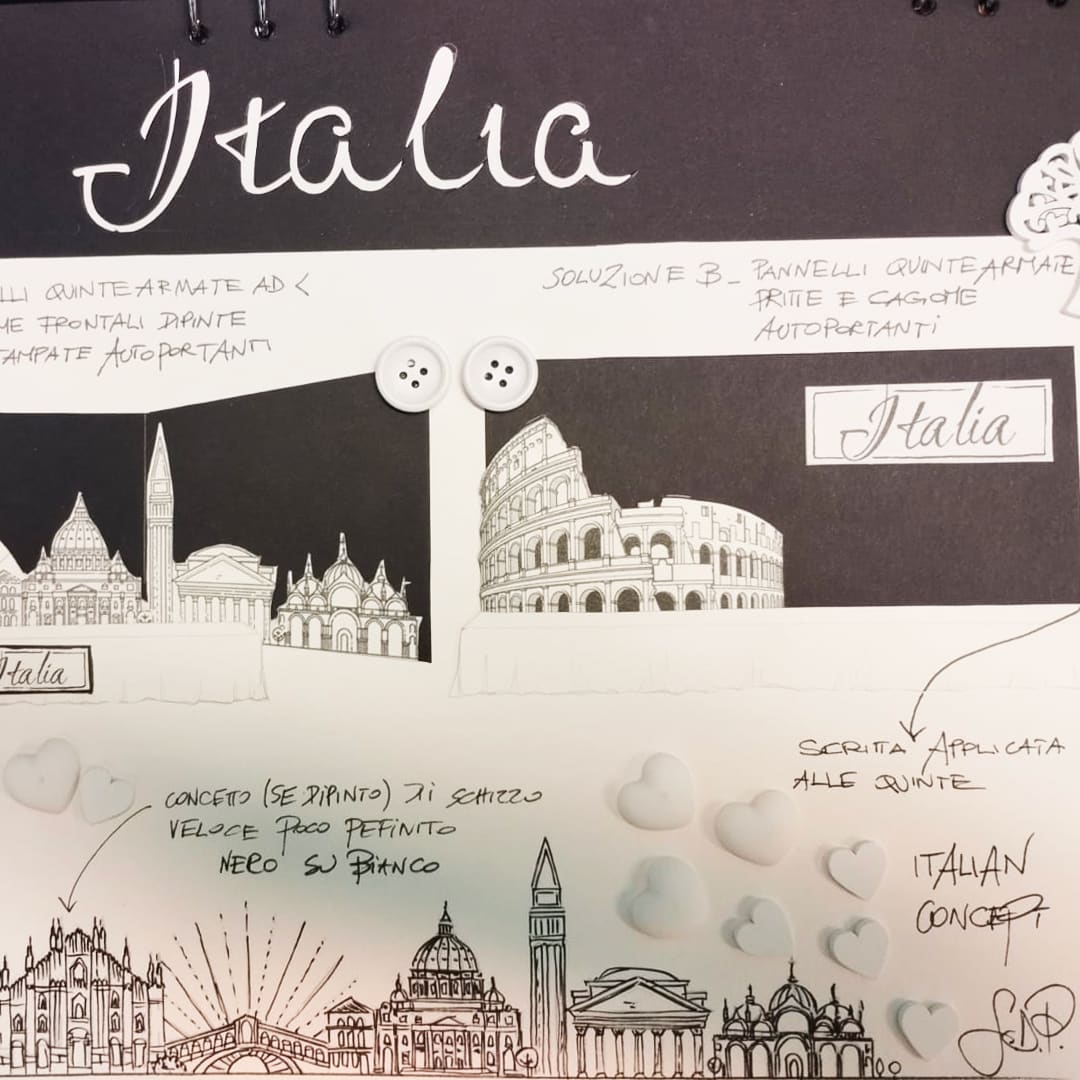 Italia
LLI QUINTE ARMATE AD <
ME FRONTALI DIPINTE
TAMPATE AUTOPORTANTI
SOLUZIONE B_ PANNELLI QUINTE ARMATE
DRITTE E CAGOME
AUTOPORTANTI
Italia
Italia
SCRITTA APPLICATA
ALLE QUINTE
CONCETTO (SE DIPINTO) DI SCHIZZO
VELOCE POCO DEFINITO
NERO SU BIANCO
ITALIAN
CONCEPT